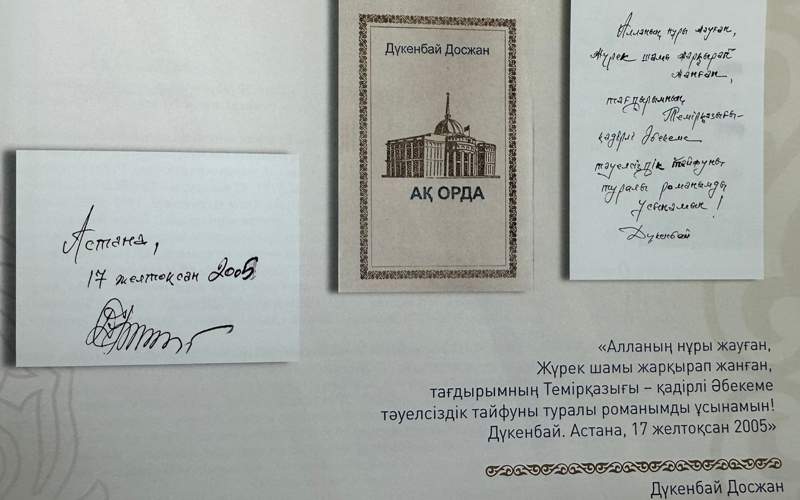 Астана,
17 желтоқсан 2005
Дүкенбай Досжан
АҚ ОРДА
Алланың нұры жауған,
Жүрек шамы жарқырап
жанған,
тағдырымның
Темірқазығы-
қадірлі Әбекеме
тәуелсіздік тайфуны
туралы романымды
ұсынамын!
Дүкенбай
«Алланың нұры жауған,
Жүрек шамы жарқырап жанған,
тағдырымның Темірқазығы – қадірлі Әбекеме
тәуелсіздік тайфуны туралы романымды ұсынамын!
Дүкенбай. Астана, 17 желтоқсан 2005»
Дүкенбай Досжан